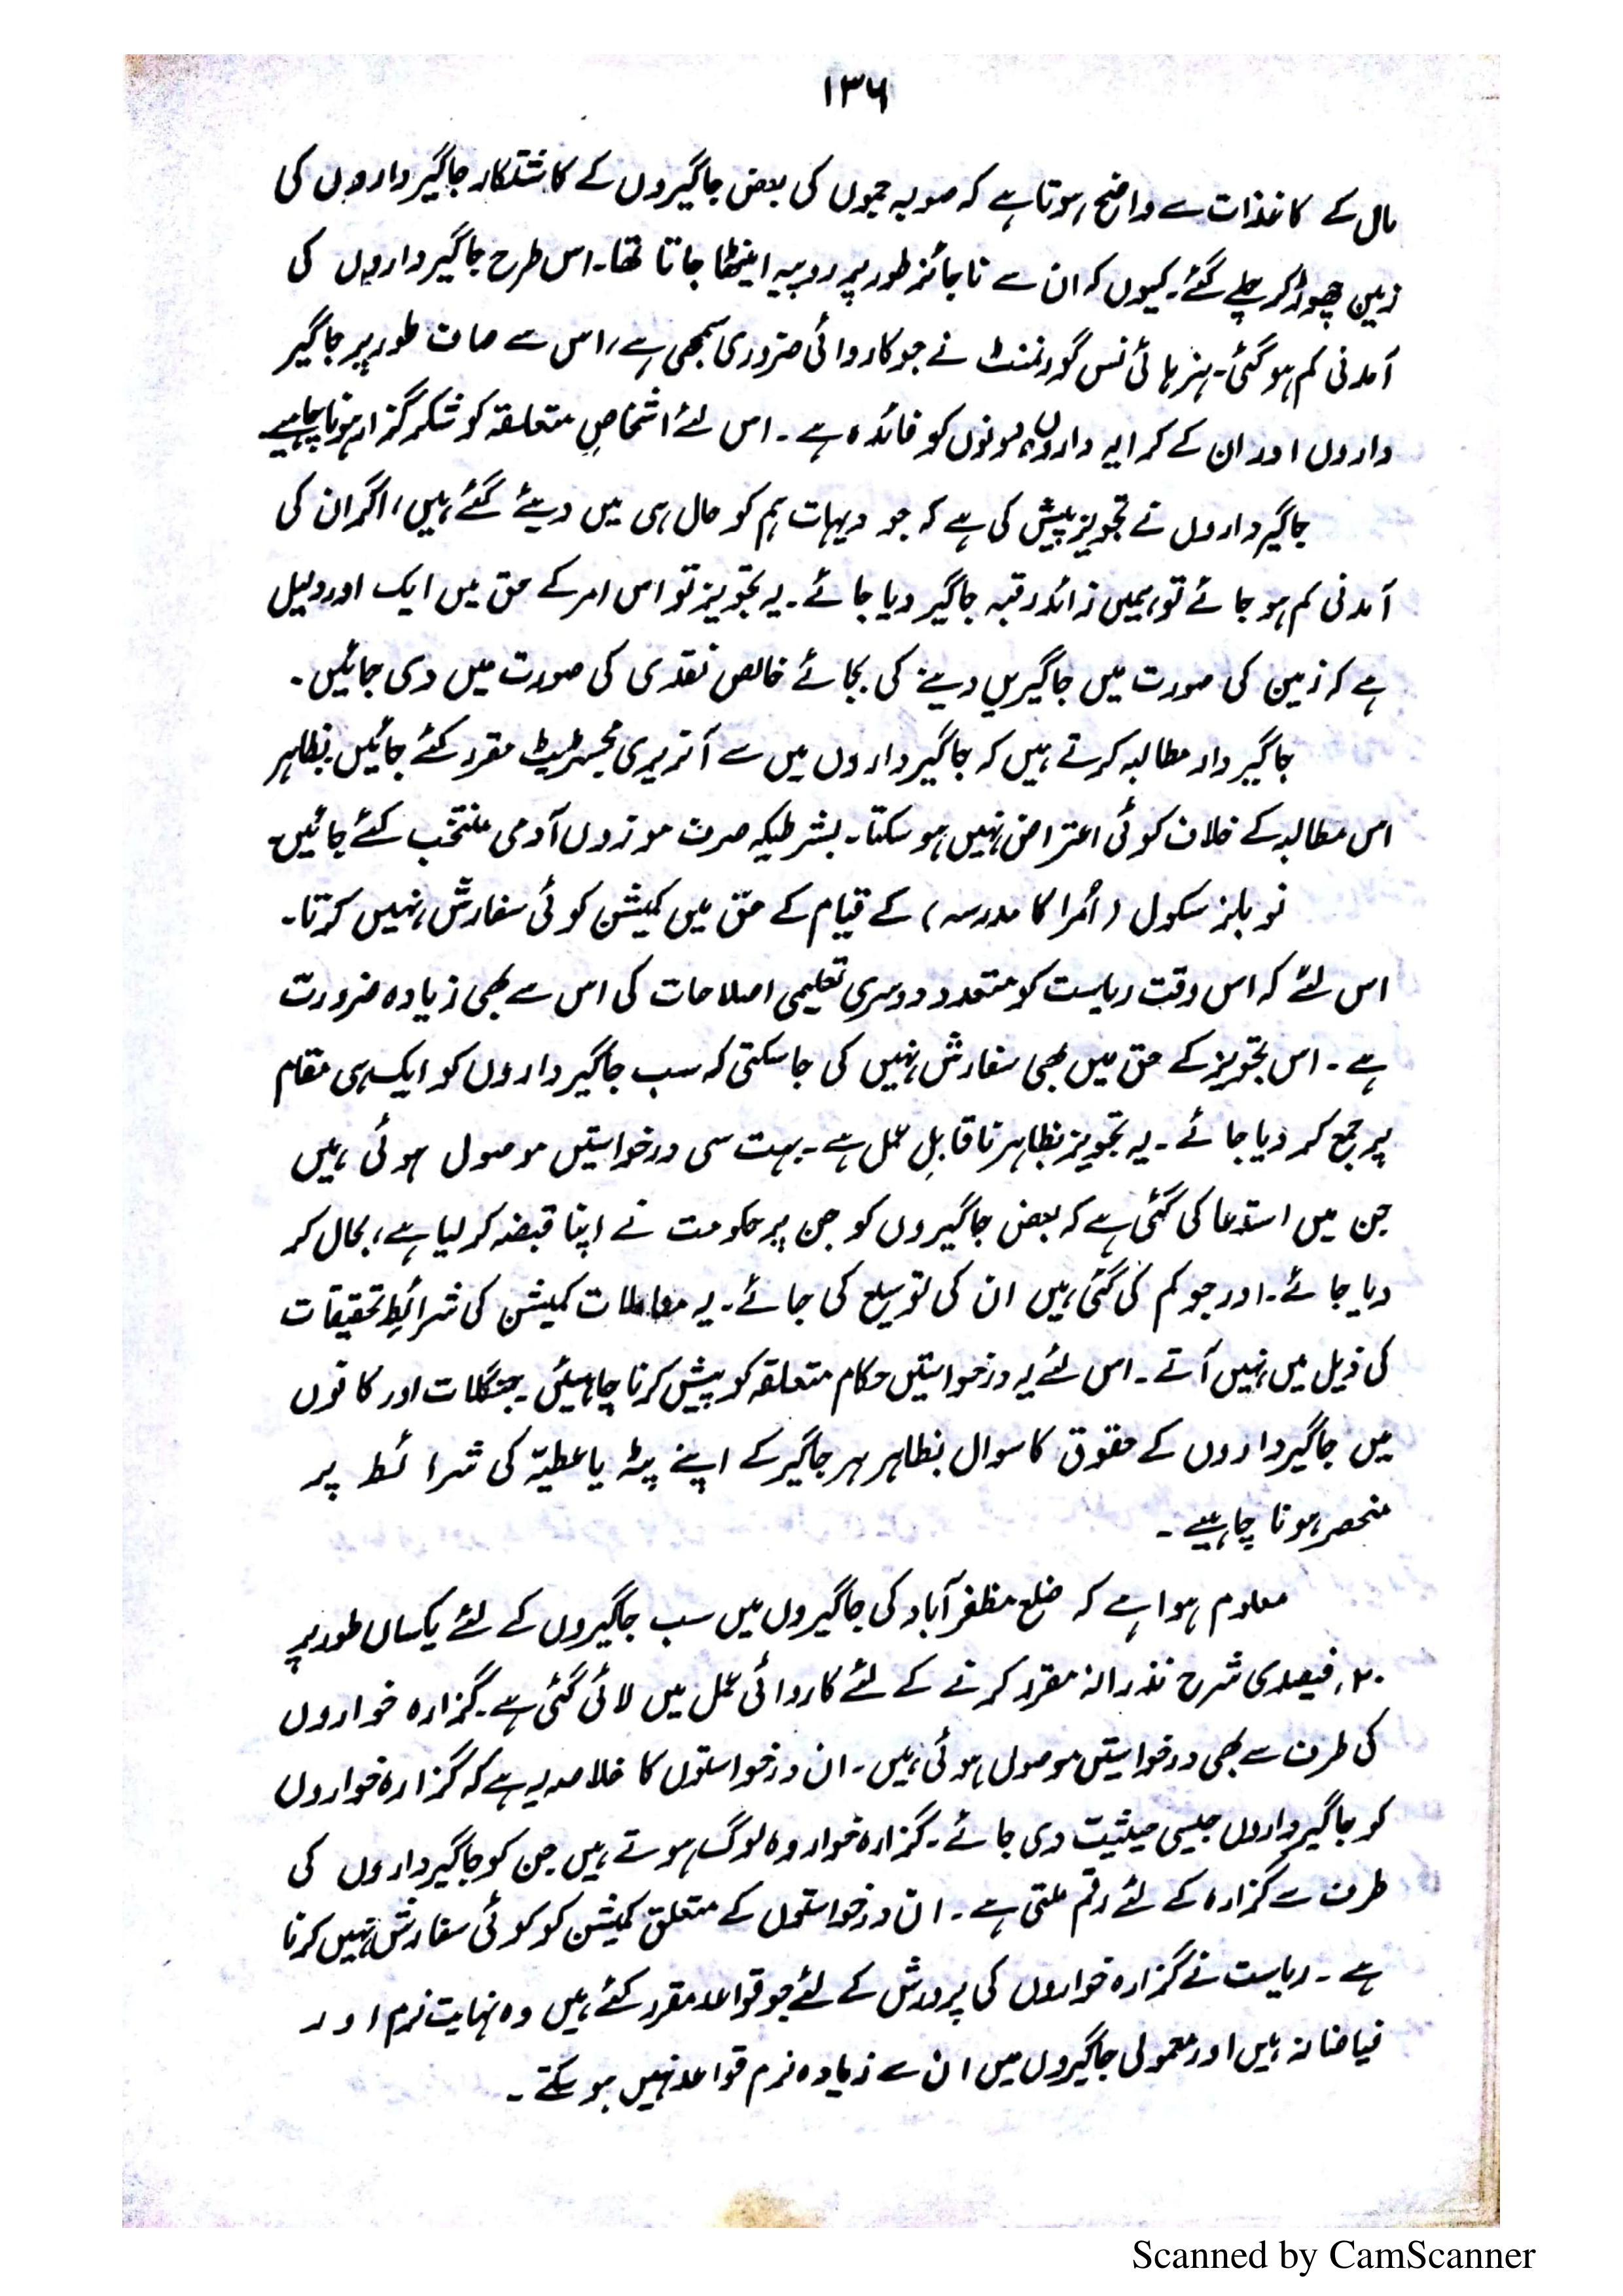 ۱۳۶
مال کے کاغذات سے واضح ہوتا ہے کہ صوبہ جموں کی بعض جاگیروں کے کاشتکار جاگیرداروں کی
زمین چھوڑ کر چلے گئے۔ کیوں کہ ان سے ناجائز طور پر روپیہ اینٹھا جاتا تھا۔ اس طرح جاگیرداروں کی
آمدنی کم ہو گئی۔ ہزہائی نس گورنمنٹ نے جو کاروائی ضروری سمجھی ہے، اس سے صاف طور پر جاگیر
داروں اور ان کے کرایہ داروں دونوں کو فائدہ ہے۔ اس لئے اشخاصِ متعلقہ کو شکر گزار ہونا چاہیے
جاگیرداروں نے تجویز پیش کی ہے کہ جو دیہات ہم کو حال ہی میں دیئے گئے ہیں، اگر ان کی
آمدنی کم ہو جائے تو ہمیں زائد رقبہ جاگیر دیا جائے۔ یہ تجویز تو اس امر کے حق میں ایک اور دلیل
ہے کہ زمین کی صورت میں جاگیریں دینے کی بجائے خالص نقدی کی صورت میں دی جائیں۔
جاگیردار مطالبہ کرتے ہیں کہ جاگیرداروں میں سے آنریری مجسٹریٹ مقرر کئے جائیں۔ بظاہر
اس مطالبہ کے خلاف کوئی اعتراض نہیں ہو سکتا۔ بشرطیکہ صرف موزوں آدمی منتخب کئے جائیں۔
نوبلز سکول (اُمرا کا مدرسہ) کے قیام کے حق میں کمیشن کوئی سفارش نہیں کرتا۔
اس لئے کہ اس وقت ریاست کو متعدد دوسری تعلیمی اصلاحات کی اس سے بھی زیادہ ضرورت
ہے۔ اس تجویز کے حق میں بھی سفارش نہیں کی جا سکتی کہ سب جاگیرداروں کو ایک ہی مقام
پر جمع کر دیا جائے۔ یہ تجویز بظاہر ناقابلِ عمل ہے۔ بہت سی درخواستیں موصول ہوئی ہیں
جن میں استدعا کی گئی ہے کہ بعض جاگیروں کو جن پر حکومت نے اپنا قبضہ کر لیا ہے، بحال کر
دیا جائے۔ اور جو کم کی گئی ہیں ان کی توسیع کی جائے۔ یہ معاملات کمیشن کی شرائطِ تحقیقات
کی ذیل میں نہیں آتے۔ اس لئے یہ درخواستیں حکام متعلقہ کو پیش کرنا چاہئیں۔ جنگلات اور کانوں
میں جاگیرداروں کے حقوق کا سوال بظاہر ہر جاگیر کے اپنے پٹہ یا عطیّہ کی شرائط پر
منحصر ہونا چاہیے۔
معلوم ہوا ہے کہ ضلع مظفر آباد کی جاگیروں میں سب جاگیروں کے لئے یکساں طور پر
۲۰ فیصدی شرح نذرانہ مقرر کرنے کے لئے کاروائی عمل میں لائی گئی ہے۔ گزارہ خواروں
کی طرف سے بھی درخواستیں موصول ہوئی ہیں۔ ان درخواستوں کا خلاصہ یہ ہے کہ گزارہ خواروں
کو جاگیرداروں جیسی حیثیت دی جائے۔ گزارہ خوار وہ لوگ ہوتے ہیں جن کو جاگیرداروں کی
طرف سے گزارہ کے لئے رقم ملتی ہے۔ ان درخواستوں کے متعلق کمیشن کو کوئی سفارش نہیں کرنا
ہے۔ ریاست نے گزارہ خواروں کی پرورش کے لئے جو قواعد مقرر کئے ہیں وہ نہایت نرم اور
فیاضانہ ہیں اور معمولی جاگیروں میں ان سے زیادہ نرم قواعد نہیں ہو سکتے۔
Scanned by CamScanner